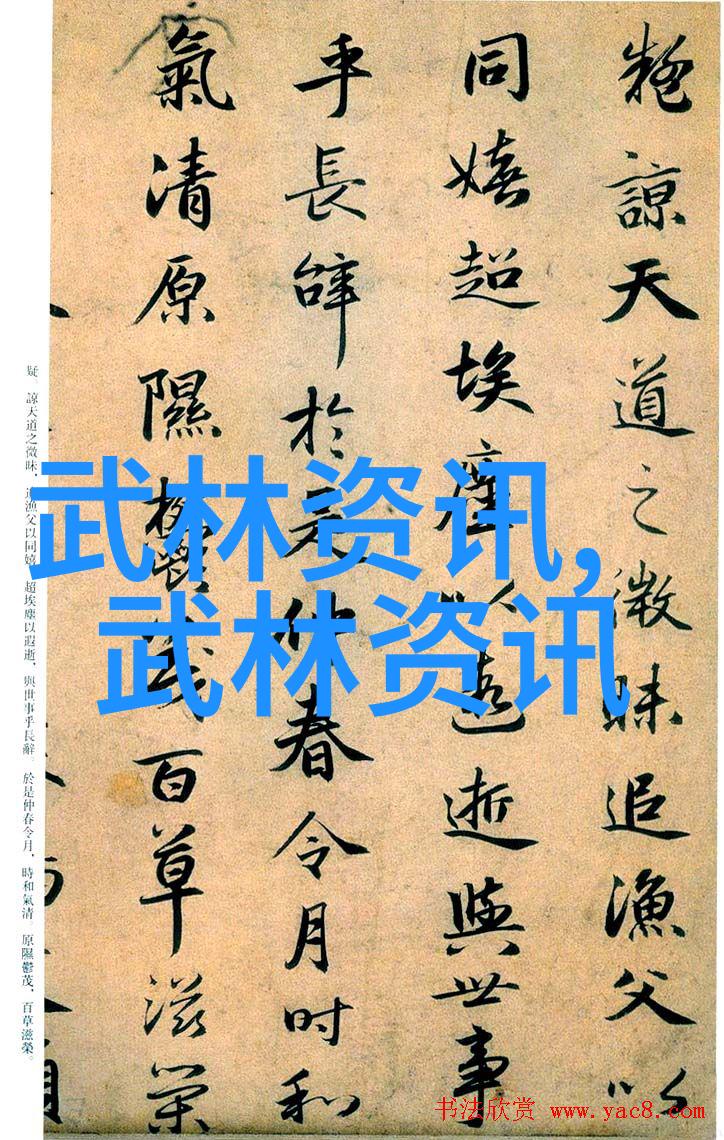 疑諒天道之微昧追漁父以
同嬉超埃塵以遐逝與世事
乎長辭於是仲春令月时和
氣清原隰鬱茂百草滋榮
疑。諒天道之微昧,追漁父以同嬉。超埃塵以遐逝,與世事乎長辭。於是仲春令月,時和氣清。原隰鬱茂,百草滋榮。
武林资讯,
武林资讯
书法欣赏 www.yac8.com